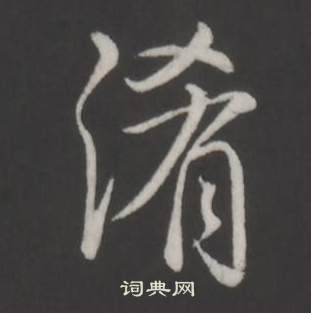 淆
词典网